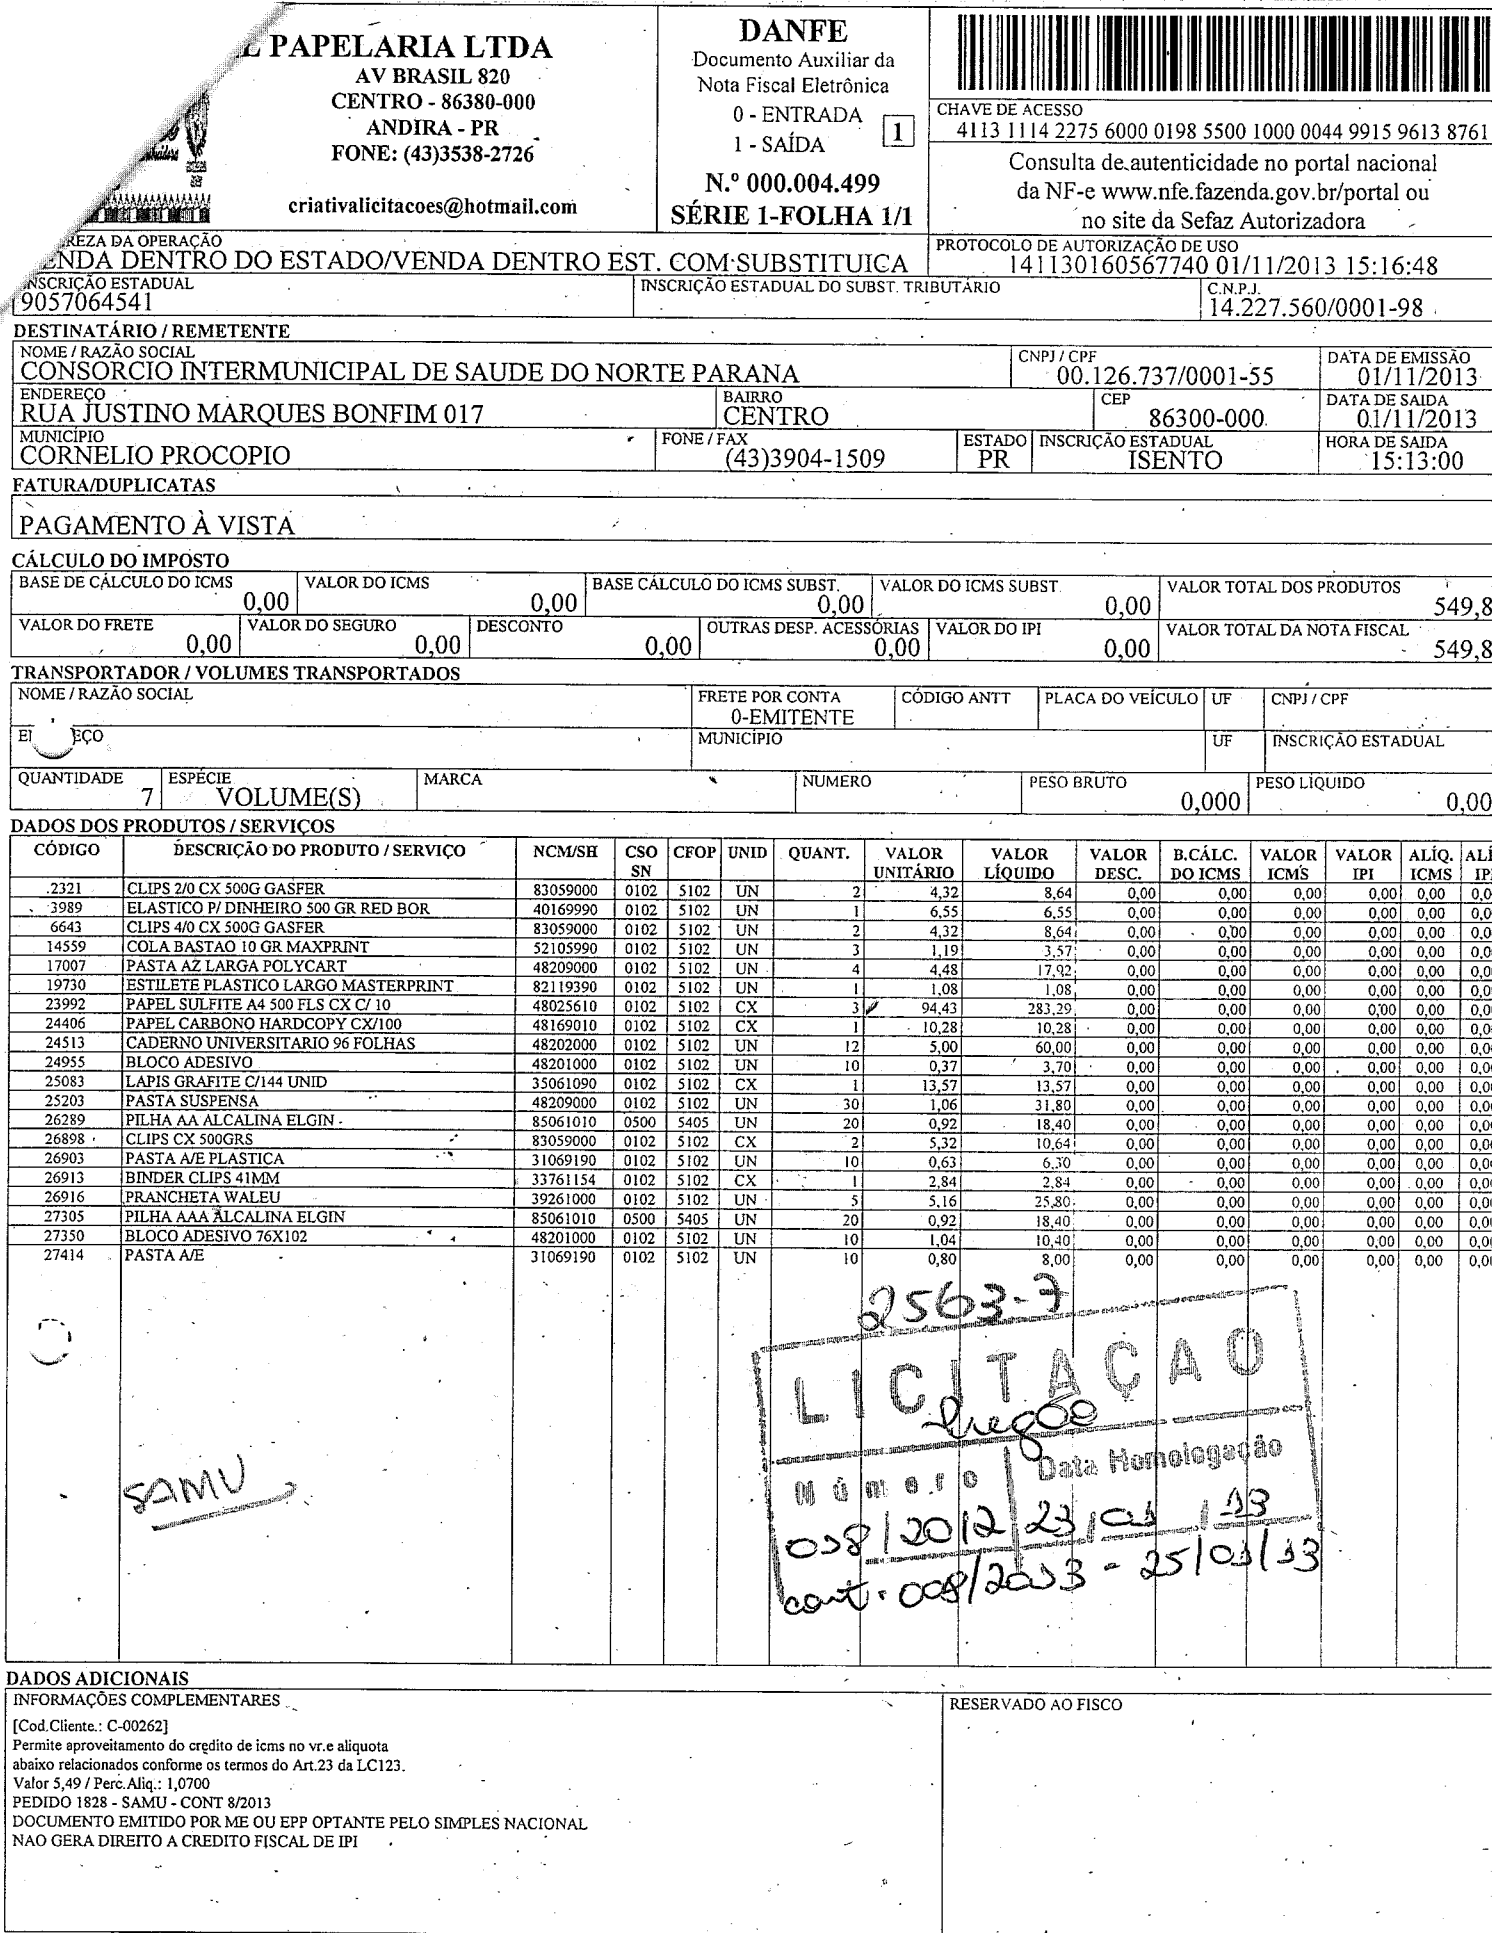 L PAPELARIA LTDA
AV BRASIL 820
CENTRO - 86380-000
ANDIRA - PR
FONE: (43)3538-2726
criativalicitacoes@hotmail.com
DANFE
Documento Auxiliar da
Nota Fiscal Eletrônica
0 - ENTRADA
1 - SAÍDA
1
N.º 000.004.499
SÉRIE 1-FOLHA 1/1
CHAVE DE ACESSO
4113 1114 2275 6000 0198 5500 1000 0044 9915 9613 8761
Consulta de autenticidade no portal nacional
da NF-e www.nfe.fazenda.gov.br/portal ou
no site da Sefaz Autorizadora
REZA DA OPERAÇÃO
ENDA DENTRO DO ESTADO/VENDA DENTRO EST. COM SUBSTITUICA
PROTOCOLO DE AUTORIZAÇÃO DE USO
141130160567740 01/11/2013 15:16:48
INSCRIÇÃO ESTADUAL
9057064541
INSCRIÇÃO ESTADUAL DO SUBST. TRIBUTÁRIO
C.N.P.J.
14.227.560/0001-98
DESTINATÁRIO / REMETENTE
NOME / RAZÃO SOCIAL
CONSORCIO INTERMUNICIPAL DE SAUDE DO NORTE PARANA
CNPJ / CPF
00.126.737/0001-55
DATA DE EMISSÃO
01/11/2013
ENDEREÇO
RUA JUSTINO MARQUES BONFIM 017
BAIRRO
CENTRO
CEP
86300-000
DATA DE SAIDA
01/11/2013
MUNICÍPIO
CORNELIO PROCOPIO
FONE / FAX
(43)3904-1509
ESTADO
PR
INSCRIÇÃO ESTADUAL
ISENTO
HORA DE SAIDA
15:13:00
FATURA/DUPLICATAS
PAGAMENTO À VISTA
CÁLCULO DO IMPOSTO
BASE DE CÁLCULO DO ICMS 0,00
VALOR DO ICMS 0,00
BASE CÁLCULO DO ICMS SUBST. 0,00
VALOR DO ICMS SUBST 0,00
VALOR TOTAL DOS PRODUTOS 549,8
VALOR DO FRETE 0,00
VALOR DO SEGURO 0,00
DESCONTO 0,00
OUTRAS DESP. ACESSÓRIAS 0,00
VALOR DO IPI 0,00
VALOR TOTAL DA NOTA FISCAL 549,8
TRANSPORTADOR / VOLUMES TRANSPORTADOS
NOME / RAZÃO SOCIAL
FRETE POR CONTA
0-EMITENTE
CÓDIGO ANTT
PLACA DO VEÍCULO
UF
CNPJ / CPF
EÇO
MUNICÍPIO
UF
INSCRIÇÃO ESTADUAL
QUANTIDADE 7
ESPÉCIE VOLUME(S)
MARCA
NUMERO
PESO BRUTO 0,000
PESO LÍQUIDO 0,00
DADOS DOS PRODUTOS / SERVIÇOS
CÓDIGO DESCRIÇÃO DO PRODUTO / SERVIÇO NCM/SH CSO SN CFOP UNID QUANT. VALOR UNITÁRIO VALOR LÍQUIDO VALOR DESC. B.CÁLC. DO ICMS VALOR ICMS VALOR IPI ALÍQ. ICMS ALÍ IP
2321 CLIPS 2/0 CX 500G GASFER 83059000 0102 5102 UN 2 4,32 8,64 0,00 0,00 0,00 0,00 0,00 0,0
3989 ELASTICO P/ DINHEIRO 500 GR RED BOR 40169990 0102 5102 UN 1 6,55 6,55 0,00 0,00 0,00 0,00 0,00 0,0
6643 CLIPS 4/0 CX 500G GASFER 83059000 0102 5102 UN 2 4,32 8,64 0,00 0,00 0,00 0,00 0,00 0,0
14559 COLA BASTAO 10 GR MAXPRINT 52105990 0102 5102 UN 3 1,19 3,57 0,00 0,00 0,00 0,00 0,00 0,0
17007 PASTA AZ LARGA POLYCART 48209000 0102 5102 UN 4 4,48 17,92 0,00 0,00 0,00 0,00 0,00 0,0
19730 ESTILETE PLASTICO LARGO MASTERPRINT 82119390 0102 5102 UN 1 1,08 1,08 0,00 0,00 0,00 0,00 0,00 0,0
23992 PAPEL SULFITE A4 500 FLS CX C/ 10 48025610 0102 5102 CX 3 94,43 283,29 0,00 0,00 0,00 0,00 0,00 0,0
24406 PAPEL CARBONO HARDCOPY CX/100 48169010 0102 5102 CX 1 10,28 10,28 0,00 0,00 0,00 0,00 0,00 0,0
24513 CADERNO UNIVERSITARIO 96 FOLHAS 48202000 0102 5102 UN 12 5,00 60,00 0,00 0,00 0,00 0,00 0,00 0,0
24955 BLOCO ADESIVO 48201000 0102 5102 UN 10 0,37 3,70 0,00 0,00 0,00 0,00 0,00 0,0
25083 LAPIS GRAFITE C/144 UNID 35061090 0102 5102 CX 1 13,57 13,57 0,00 0,00 0,00 0,00 0,00 0,0
25203 PASTA SUSPENSA 48209000 0102 5102 UN 30 1,06 31,80 0,00 0,00 0,00 0,00 0,00 0,0
26289 PILHA AA ALCALINA ELGIN 85061010 0500 5405 UN 20 0,92 18,40 0,00 0,00 0,00 0,00 0,00 0,0
26898 CLIPS CX 500GRS 83059000 0102 5102 CX 2 5,32 10,64 0,00 0,00 0,00 0,00 0,00 0,0
26903 PASTA A/E PLASTICA 31069190 0102 5102 UN 10 0,63 6,30 0,00 0,00 0,00 0,00 0,00 0,0
26913 BINDER CLIPS 41MM 33761154 0102 5102 CX 1 2,84 2,84 0,00 0,00 0,00 0,00 0,00 0,0
26916 PRANCHETA WALEU 39261000 0102 5102 UN 5 5,16 25,80 0,00 0,00 0,00 0,00 0,00 0,0
27305 PILHA AAA ALCALINA ELGIN 85061010 0500 5405 UN 20 0,92 18,40 0,00 0,00 0,00 0,00 0,00 0,0
27350 BLOCO ADESIVO 76X102 48201000 0102 5102 UN 10 1,04 10,40 0,00 0,00 0,00 0,00 0,00 0,0
27414 PASTA A/E 31069190 0102 5102 UN 10 0,80 8,00 0,00 0,00 0,00 0,00 0,00 0,0
2563-7
LICITAÇÃO
Pregão
Número Data Homologação
SAMU
038/2012 23/01/13
cont. 008/2013 - 25/01/13
DADOS ADICIONAIS
INFORMAÇÕES COMPLEMENTARES
RESERVADO AO FISCO
[Cod.Cliente.: C-00262]
Permite aproveitamento do credito de icms no vr.e aliquota
abaixo relacionados conforme os termos do Art.23 da LC123.
Valor 5,49 / Perc.Aliq.: 1,0700
PEDIDO 1828 - SAMU - CONT 8/2013
DOCUMENTO EMITIDO POR ME OU EPP OPTANTE PELO SIMPLES NACIONAL
NAO GERA DIREITO A CREDITO FISCAL DE IPI